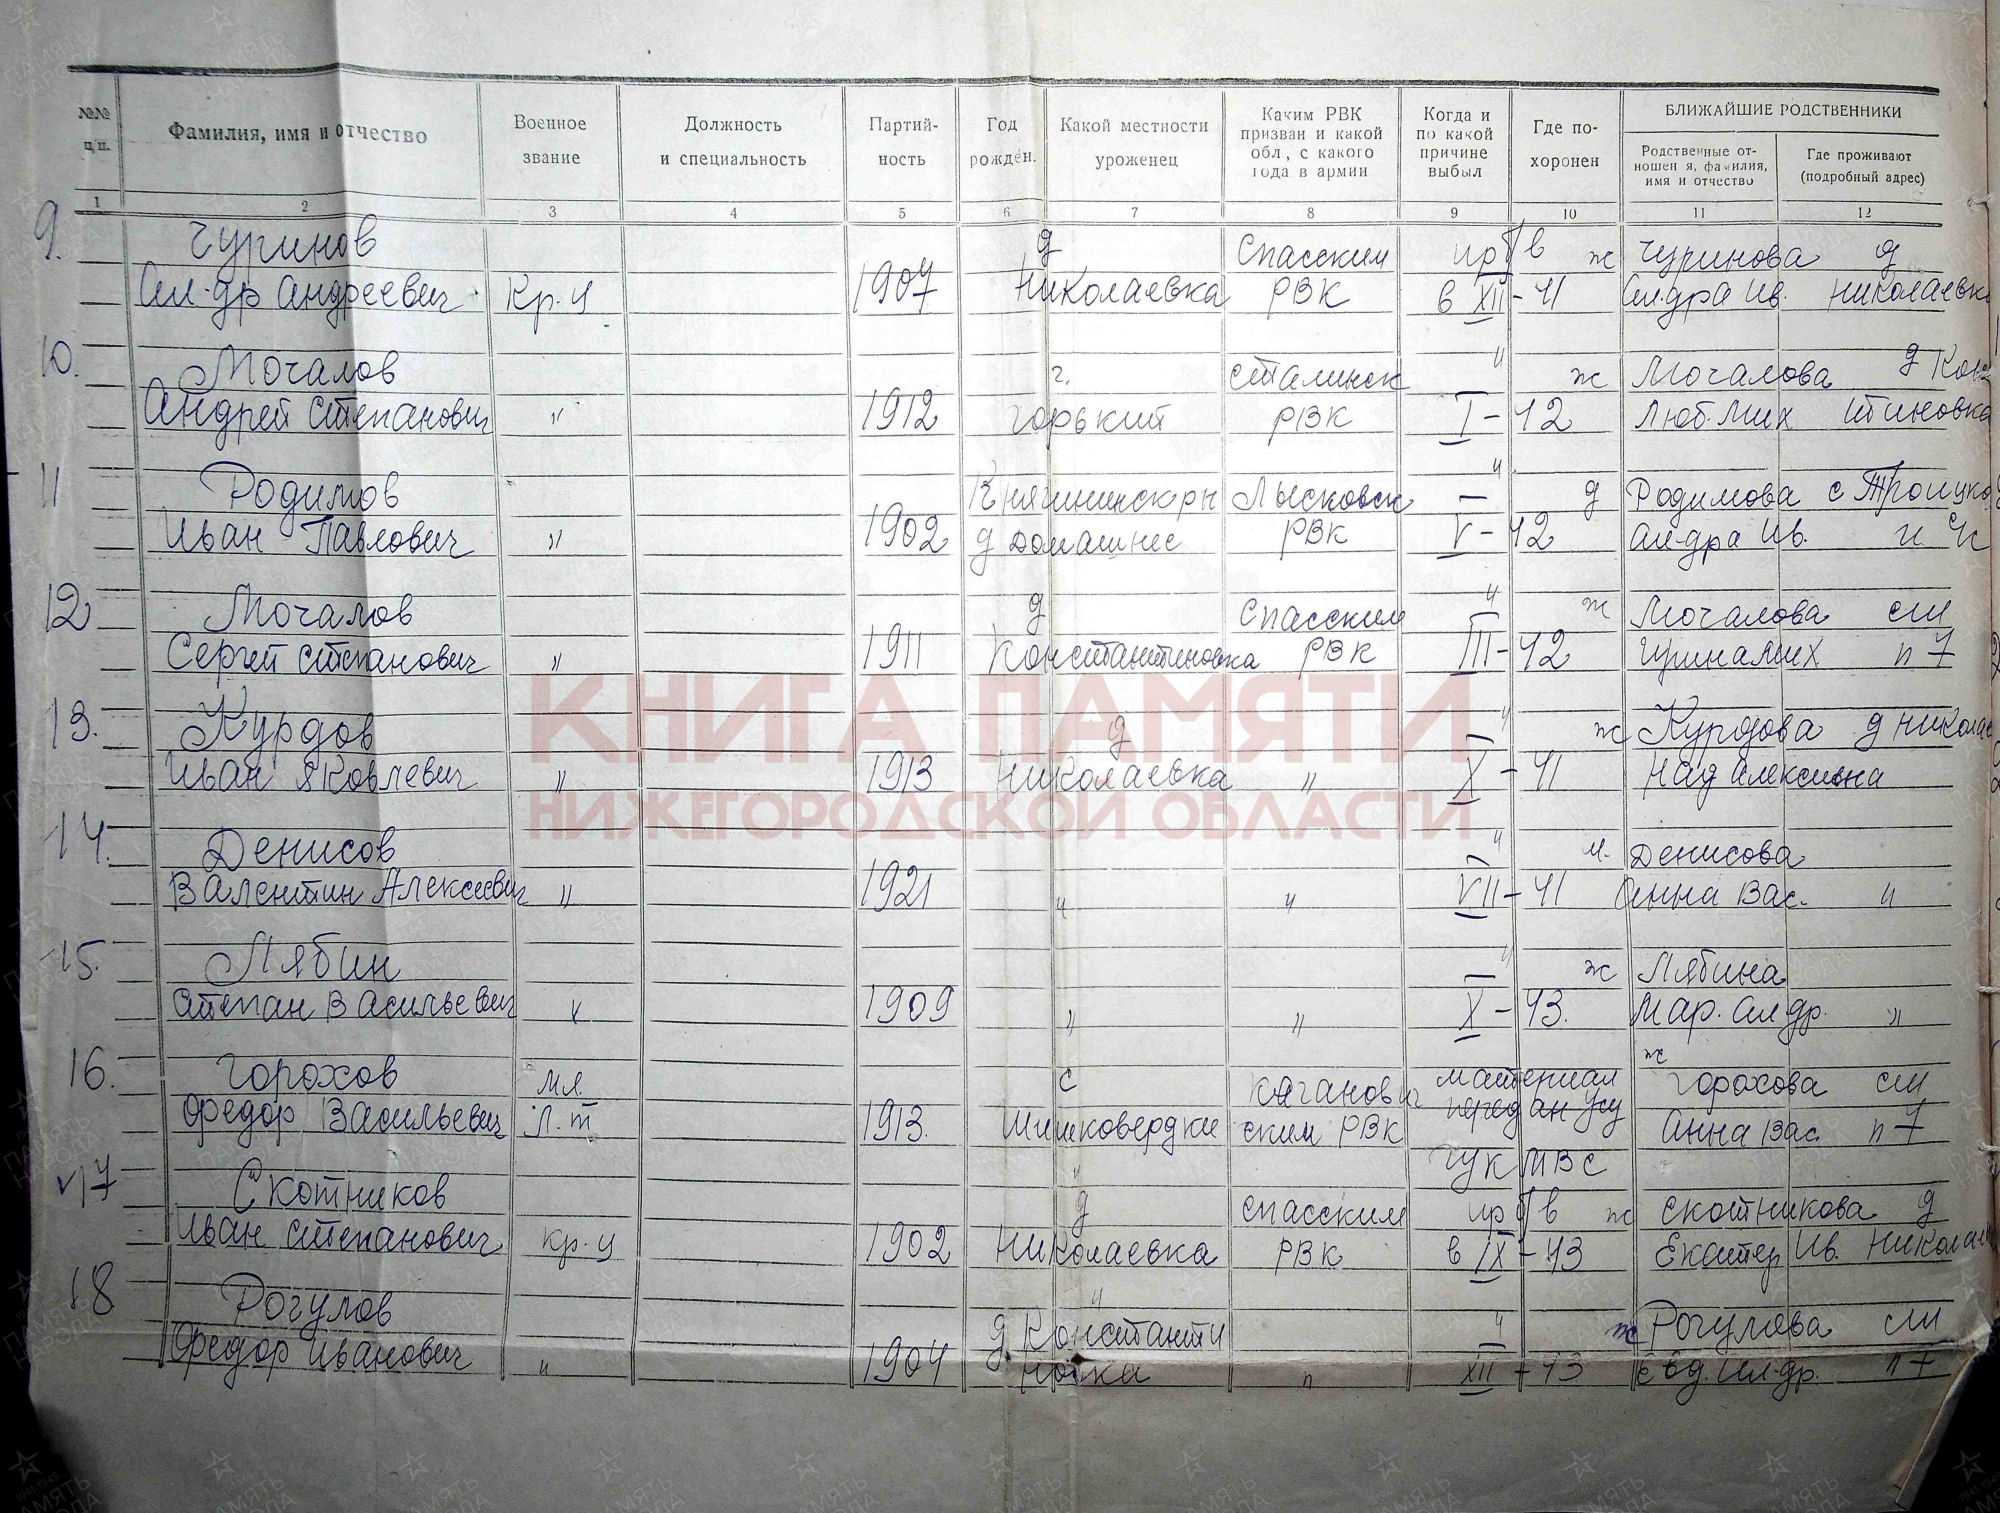 №№ п/п. Фамилия, имя и отчество Военное звание Должность и специальность Партийность Год рожден. Какой местности уроженец Каким РВК призван и какой обл, с какого года в армии Когда и по какой причине выбыл Где похоронен БЛИЖАЙШИЕ РОДСТВЕННИКИ
Родственные отношен я, фамилия, имя и отчество Где проживают (подробный адрес)
1 2 3 4 5 6 7 8 9 10 11 12
9. Чуринов д Спасским пр б/в ж Чуринова д
Ал-др Андреевич Кр-ц 1907 Николаевка РВК в XII-41 Ал-дра Ив. Николаевка
10. Мочалов г. Сталинск " ж Мочалова д Кон
Андрей Степанович " 1912 Горький РВК I-42 Люб. Мих стиновка
11 Родимов Княгининск рн Лысковск " Родимова с Троицко
Иван Павлович " 1902 д Домашнее РВК V-42 Ал-дра Ив.
12 Мочалов д Спасским " ж Мочалова см
Сергей Степанович " 1911 Константиновка РВК III-42 п 7
13. Курдов д " ж Курдова д Николае
Иван Яковлевич " 1913 Николаевка " X-41 Над Алексеевна
14. Денисов " м. Денисова
Валентин Алексеевич " 1921 " " VII-41 Анна Вас. "
15. Лябин " ж Лябина
Степан Васильевич " 1909 " " X-43. Мар. Ал др. "
16. Горохов мл. с Каганович материал ж Горохова см
Федор Васильевич л.т 1913. Шишковердки ским РВК передан Усу Анна Вас. п 7
" ГУК МВС
v17 Скотников д Спасским пр б/в ж Скотникова д
Иван Степанович кр-ц 1902 Николаевка РВК в IX-43 Екатер Ив. Николаев
18 Рогулов " д Константи " ж Рогулева см
Федор Иванович " 1904 новка " XII-43 Евд. Ал-др. п 7
КНИГА ПАМЯТИ
НИЖЕГОРОДСКОЙ ОБЛАСТИ